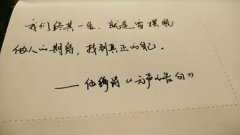 我们终其一生，就是要摆脱
他人的期待，找到真正的自己。
——伍绮诗《无声的告白》